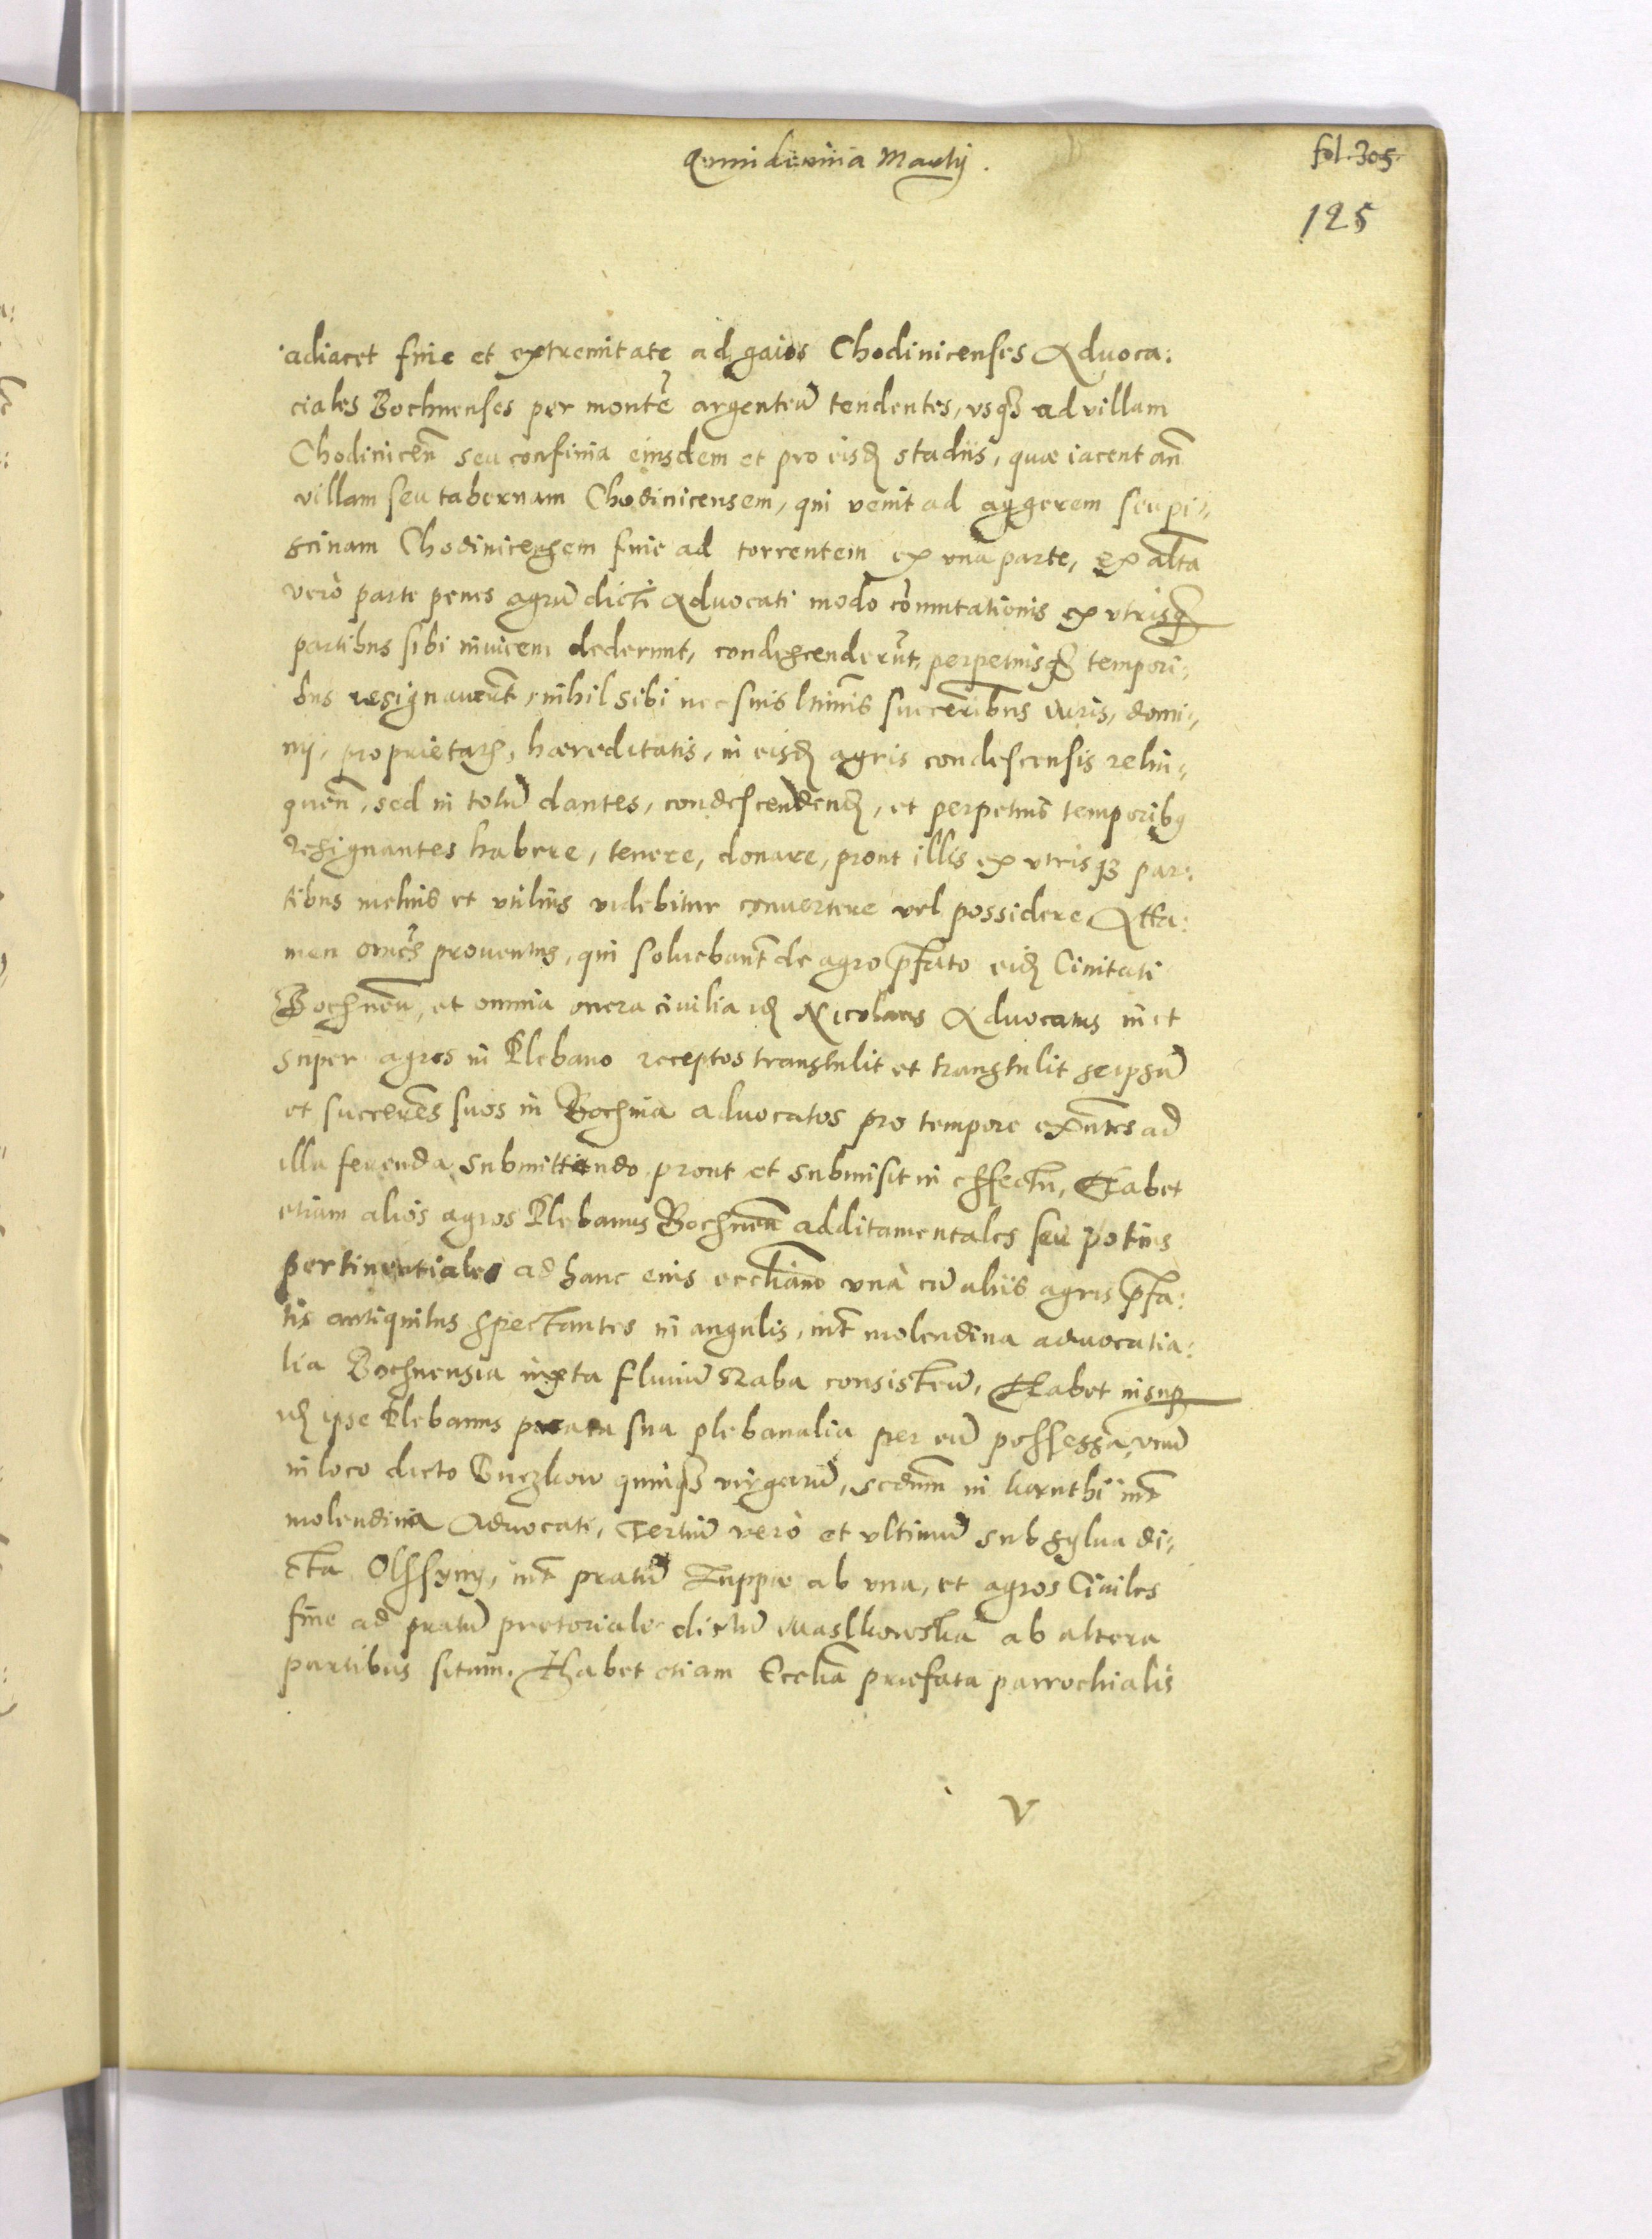 Quindecima Martij.
fol. 305.
125
adiacet fine et extremitate ad gaios Chodinicenses Aduoca:
ciales Bochnenses per montē argenteū tendentes, vsqȝ ad villam
Chodiniceñ seu confinia eiusdem et pro eisđ stadiis, quæ iacent añ
villam seu tabernam Chodinicensem, qui venit ad aggerem seu pi:,
scinam Chodinicensem fine ad torrentem ex una parte, ex alta
verò parte penes agrū dicti Aduocati modo cōmutationis ex vtrisqȝ
partibus sibi inuicem dederunt, condescenderūt, perpetuisqȝ tempori:
bus resignauerūt, nihil sibi nec suis ltimis succeribus iuris, domi:,
nij, proprietatis, hæreditatis, in eisđ agris condescensis relin:,
queñ, sed in totū dantes, condescendenđ, et perpetuis temporibȝ
resignantes habere, tenere, donare, prout illis ex vtrisqȝ par:
tibus melius et vtilius videbitur conuertere vel possidere Atta:
men omēs prouentus, qui soluebant de agro pfato eiđ Ciuitati
Bochneñ, et omnia onera ciuilia iđ Nicolaus Aduocatus in et
super agros in Plebano receptos transtulit et transtulit seipsū
et succeres suos in Bochnia aduocatos pro tempore exñtes ad
illa ferenda submittendo prout et submisit in effectū, Habet
etiam aliós agros Plebanus Bochneñ additamentales seu potius
pertinentiales ad hanc eius eccliam vnà cū aliis agris pfa:
tis antiquitus spectantes in angulis, int molendina aduocatia:
lia Bochnensia iuxta fluuiū Raba consisteñ, Habet insup
iđ ipse Plebanus prata sua plebanalia per eū possessa, vnū
in loco dicto Buczkow quinqȝ virgarū, secdum in karnthi int
molendina Aduocati, Tertiū verò et vltimū sub sylua di:,
cta Olssyny, int pratū Zuppæ ab vna, et agros Ciuiles
fine ad pratū pretoriale dictū Maslkowska ab altera
partibus situm. Habet etiam Ecclia præfata parrochialis
V